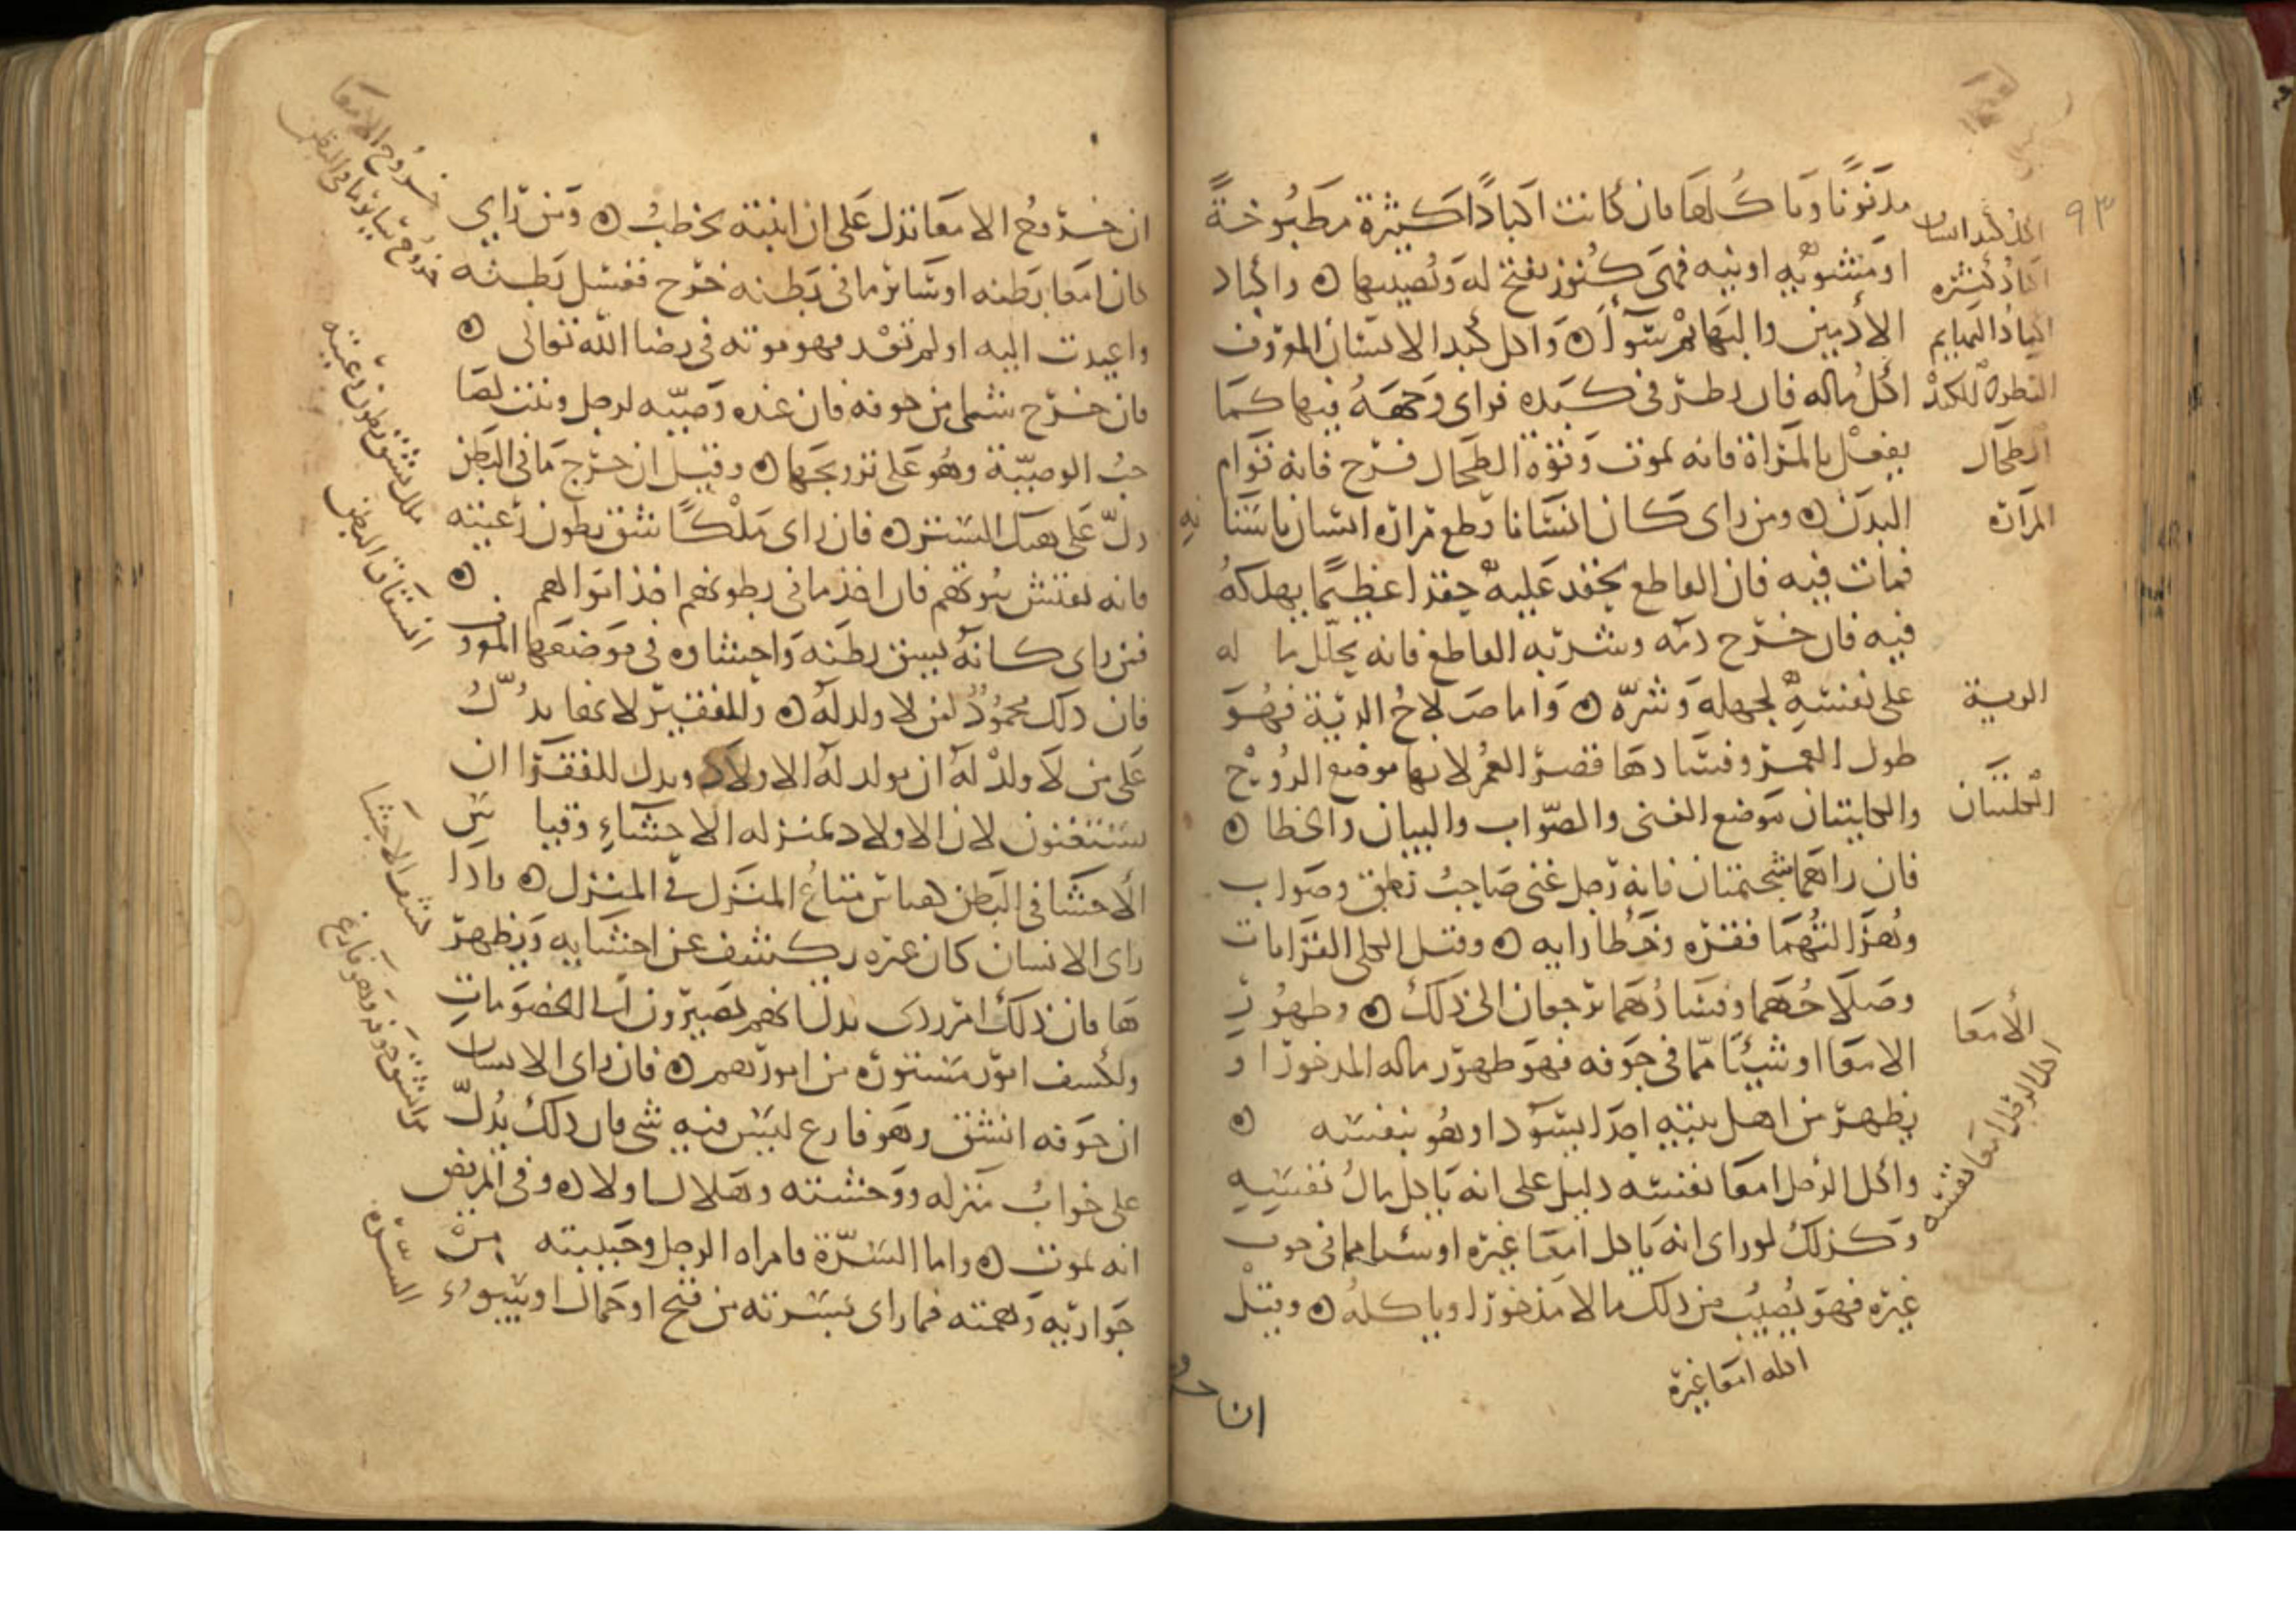 ٩٣
مدفونا وياكلها فان كانت اكبادا كثيرة مطبوخة
او مشويه او نيه فهى كنوز تفتح له ويصيبها ه واكباد
الادميين والبهايم سوا ه واكل كبد الانسان المعروف
اكل ماله فان نظر فى كبده فراى وجهه فيها كما
يفعل بالمراة فانه يموت وقوة الطحال فرح فانه قوام
البدن ه ومن راى كان انسانا قطع مرارة انسان باسنانه
فمات فيه فان القاطع يحقد عليه حقدا عظيما يهلكه
فيه فان خرج دمه وشربه القاطع فانه يحلل ماله
على نفسه لجهله وشره ه واما صلاح الرية فهو
طول العمر وفسادها قصر العمر لانها موضع الروح
والكليتان موضع الغنى والصواب والبيان والخطا ه
فان راهما شحمتان فانه رجل غنى صاحب نطق وصواب
وهزالتهما فقره وخطا رايه ه وقيل الكلى القرابات
وصلاحهما وفسادهما ترجعان الى ذلك ه وظهور
الامعا او شيئا مما فى جوفه فهو ظهور ماله المدخور او
يظهر من اهل بيته احدا يسود او هو بنفسه ه
واكل الرجل امعا نفسه دليل على انه ياكل مال نفسه
وكذلك لو راى انه ياكل امعا غيره او شيا مما فى جوف
غيره فهو يصيب من ذلك مالا مذخورا وياكله ه وقيل
ان خروج
اكل كبد انسان
اكباد كثيره
اكباد البهايم
النظر فى الكبد
الطحال
المرارة
الرية
الكليتان
الامعا
اكل الرجل امعا نفسه
اكله امعا غيره
ان خروج الامعا تدل على ان ابنته تخطب ه ومن راى
كان امعا بطنه او سائر ما فى بطنه خرج فغسل بطنه
واعيدت اليه او لم تعد فهو موته فى رضا الله تعالى ه
فان خرج شى من جوفه فان عنده وصيه لرجل وبنت لصا
حب الوصية وهو على تزويجها ه وقيل ان خرج ما فى البطن
دل على هتك الستر ه فان راى ملكا شق بطون رعيته
فانه يفتش بيوتهم فان اخذ ما فى بطونهم اخذ اموالهم ه
فمن راى كانه بين بطنه واحشاوه فى موضعها المعروف
فان ذلك محمود لمن لا ولد له ه وللفقير لانها يدل
على من لا ولد له ان يولد له الاولاد ويدل للفقرا ان
يستغنون لان الاولاد بمنزله الاحشاء وقياس
الاحشا فى البطن كقياس متاع المنزل فى المنزل ه واذا
راى الانسان كان غيره يكشف عن احشايه ويظهر
ها فان ذلك امر ردى يدل انهم يصيرون الى الخصومات
ولكشف امور مستوره من امورهم ه فان راى الانسان
ان جوفه انشق وهو فارغ ليس فيه شى فان ذلك يدل
على خراب منزله ووحشته وهلاك اولاده وفى المريض
انه يموت ه واما السرة فامراه الرجل وحبيبته من
جواريه وهمته فما راى بسرته من قبح او جمال او سوء
خروج الامعا
خروج سائر ما فى البطن
ملك شق بطون رعيته
انشقاق البطن
كشف الاحشا
من انشق جوفه وهو فارغ
السره